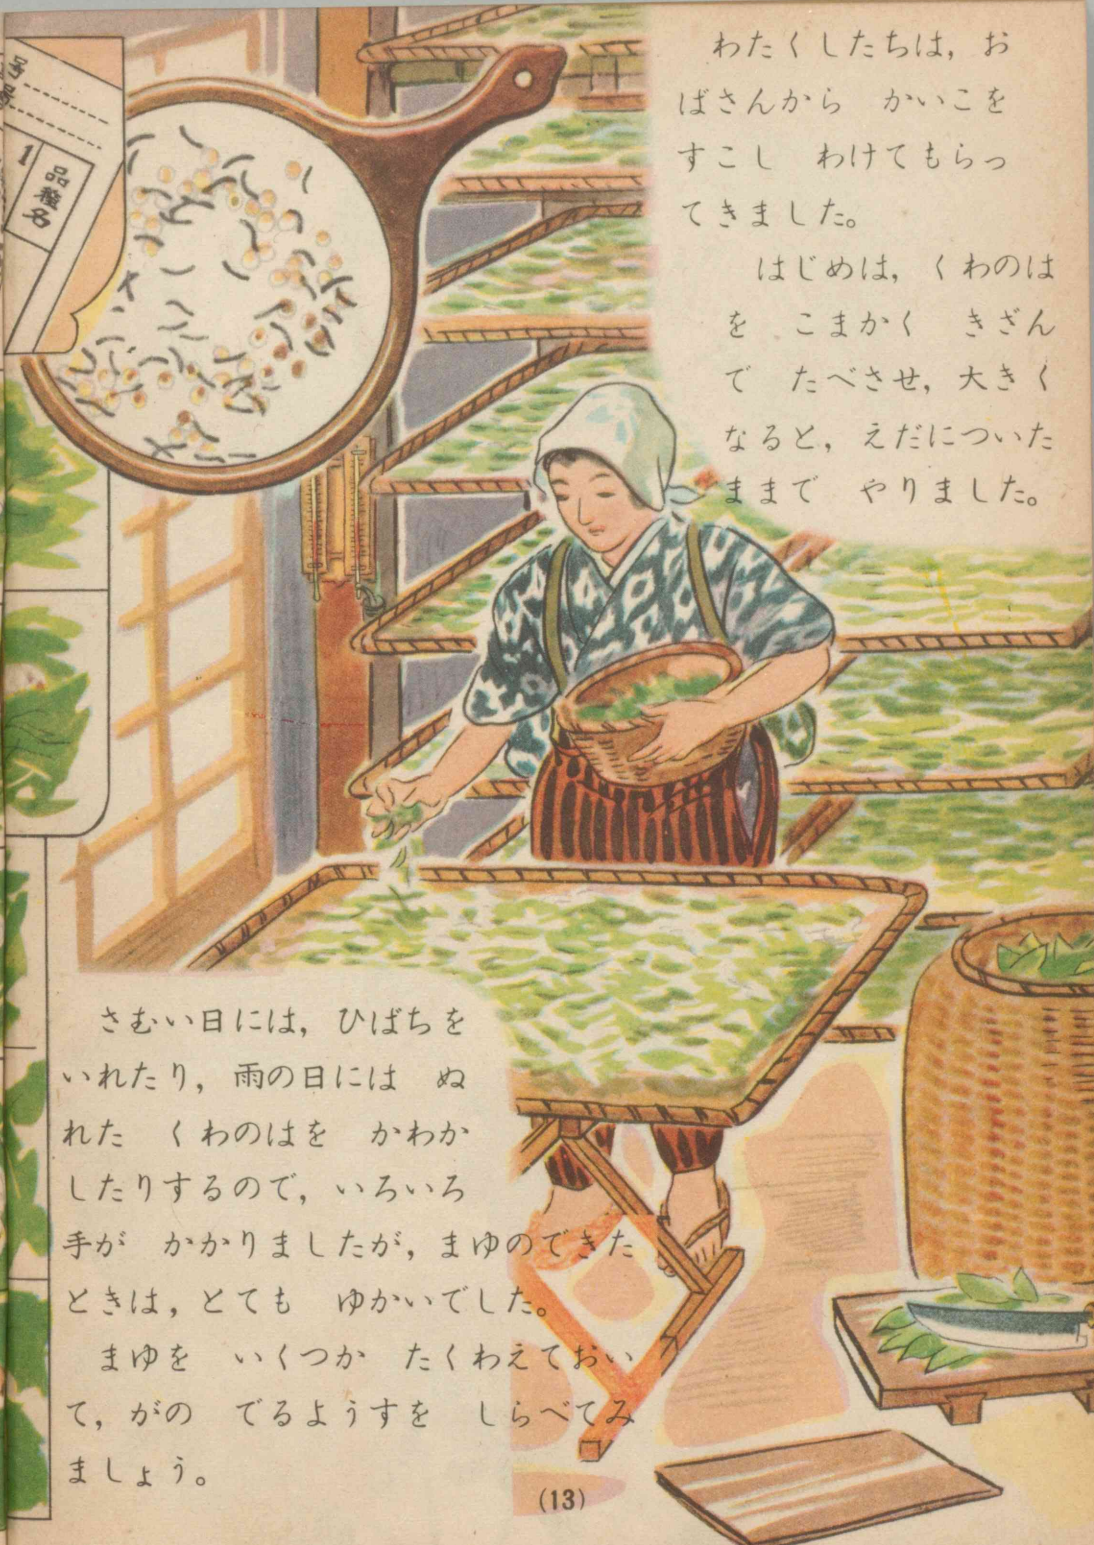 わたくしたちは，お
ばさんから　かいこを
すこし　わけてもらっ
てきました。
はじめは，くわのは
を　こまかく　きざん
で　たべさせ，大きく
なると，えだについた
ままで　やりました。
号
1
品種名
さむい日には，ひばちを
いれたり，雨の日には　ぬ
れた　くわのはを　かわか
したりするので，いろいろ
手が　かかりましたが，まゆのできた
ときは，とても　ゆかいでした。
まゆを　いくつか　たくわえておい
て，がの　でるようすを　しらべてみ
ましょう。
(13)